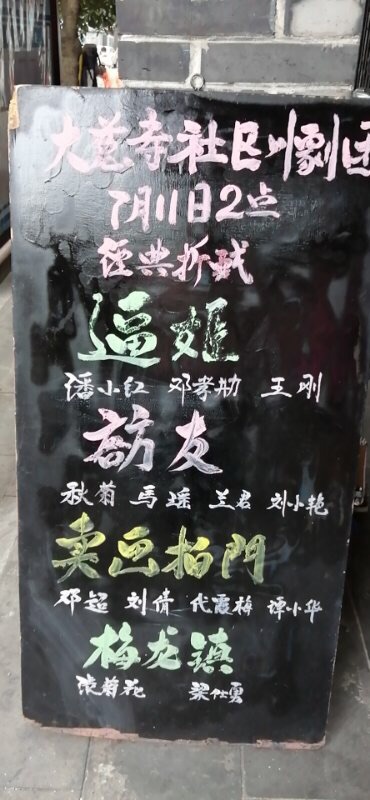 大慈寺社区川剧团
7月11日2点
经典折戏
逼姬
潘小红 邓孝勋 王刚
访友
秋菊 马瑶 兰君 刘小艳
卖画拍門
邓超 刘倩 代霞梅 谭小华
梅龙镇
陈菊花 梁仕勇